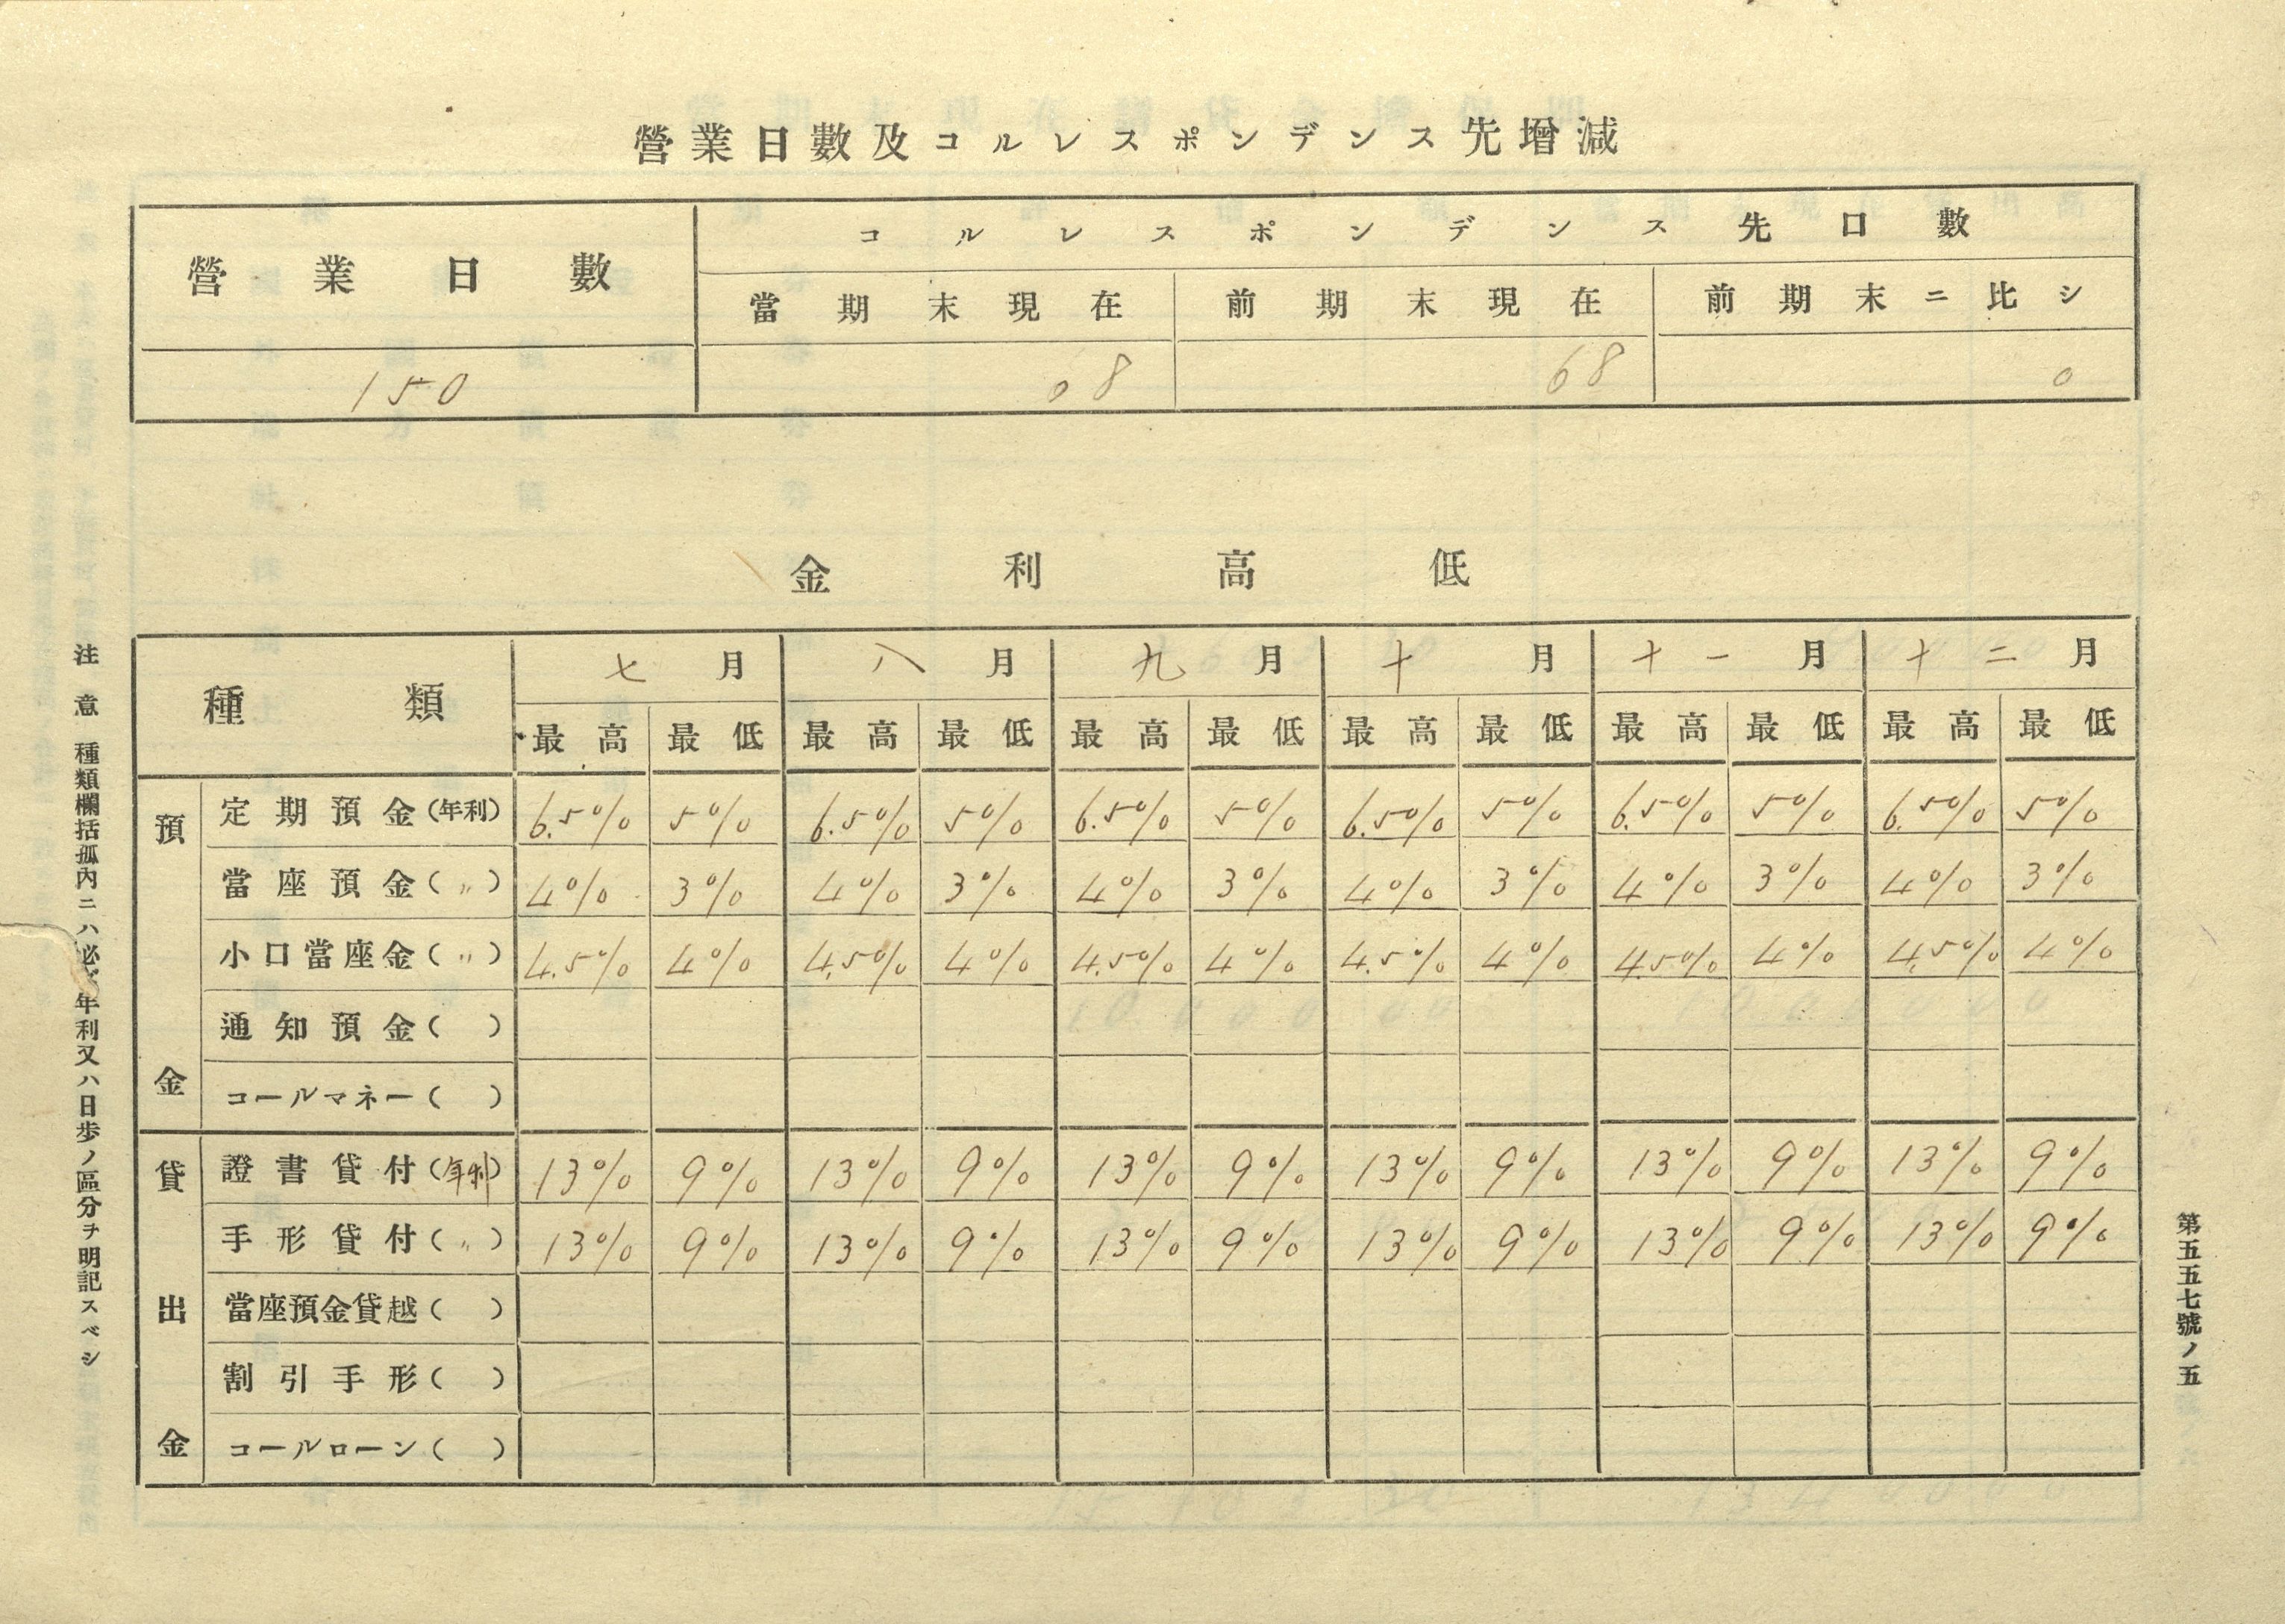 營業日數及コルレスポンデンス先增減
營業日數
コルレスポンデンス先口數
當期末現在 前期末現在 前期末ニ比シ
150 68 68 0
金利高低
種類 七月 八月 九月 十月 十一月 十二月
最高 最低 最高 最低 最高 最低 最高 最低 最高 最低 最高 最低
預金
定期預金(年利) 6.5% 5% 6.5% 5% 6.5% 5% 6.5% 5% 6.5% 5% 6.5% 5%
當座預金(〃) 4% 3% 4% 3% 4% 3% 4% 3% 4% 3% 4% 3%
小口當座金(〃) 4.5% 4% 4.5% 4% 4.5% 4% 4.5% 4% 4.5% 4% 4.5% 4%
通知預金( )
コールマネー( )
貸出金
證書貸付(年利) 13% 9% 13% 9% 13% 9% 13% 9% 13% 9% 13% 9%
手形貸付(〃) 13% 9% 13% 9% 13% 9% 13% 9% 13% 9% 13% 9%
當座預金貸越( )
割引手形( )
コールローン( )
注意 種類欄括孤內ニハ必ズ年利又ハ日步ノ區分ヲ明記スベシ
第五五七號ノ五